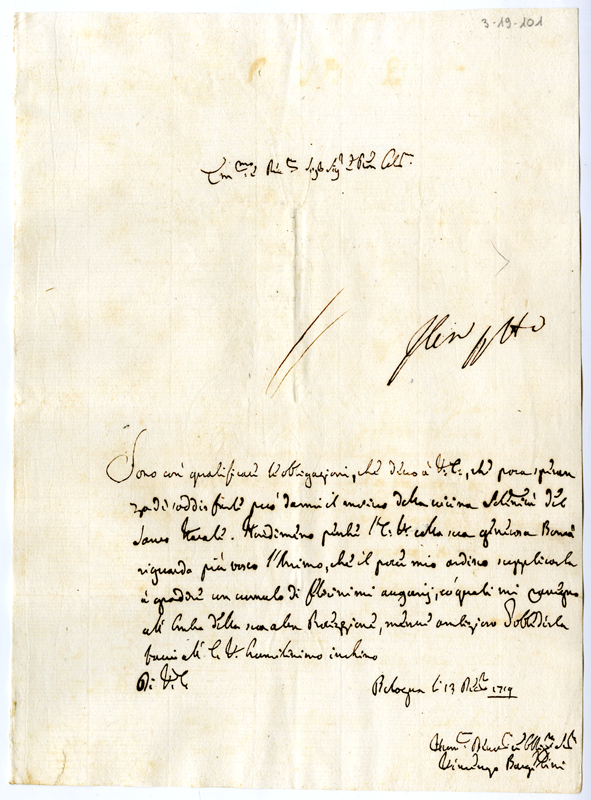 3-19-101
Em.mo e Rev.mo Sig.r Sig.r e P.ron Col.mo
Sono così qualificate le obligazioni, che devo à V.E., che poca speran
za di soddisfarle può darmi il motivo della vicina solennità del
Santo Natale. Nondimeno perche l'E.V. colla sua generosa Bontà
riguarda più tosto l'Animo, che il poter mio ardisco supplicarla
à gradire un cumulo di felicissimi augurij, co' quali mi
all' della sua alta Protezione, mentre ambizioso d'obbedirla
faccio all' E.V. humilissimo inchino
Di V.E.
Bologna li 13 Dic.re 1719
Hum.o
Bargellini